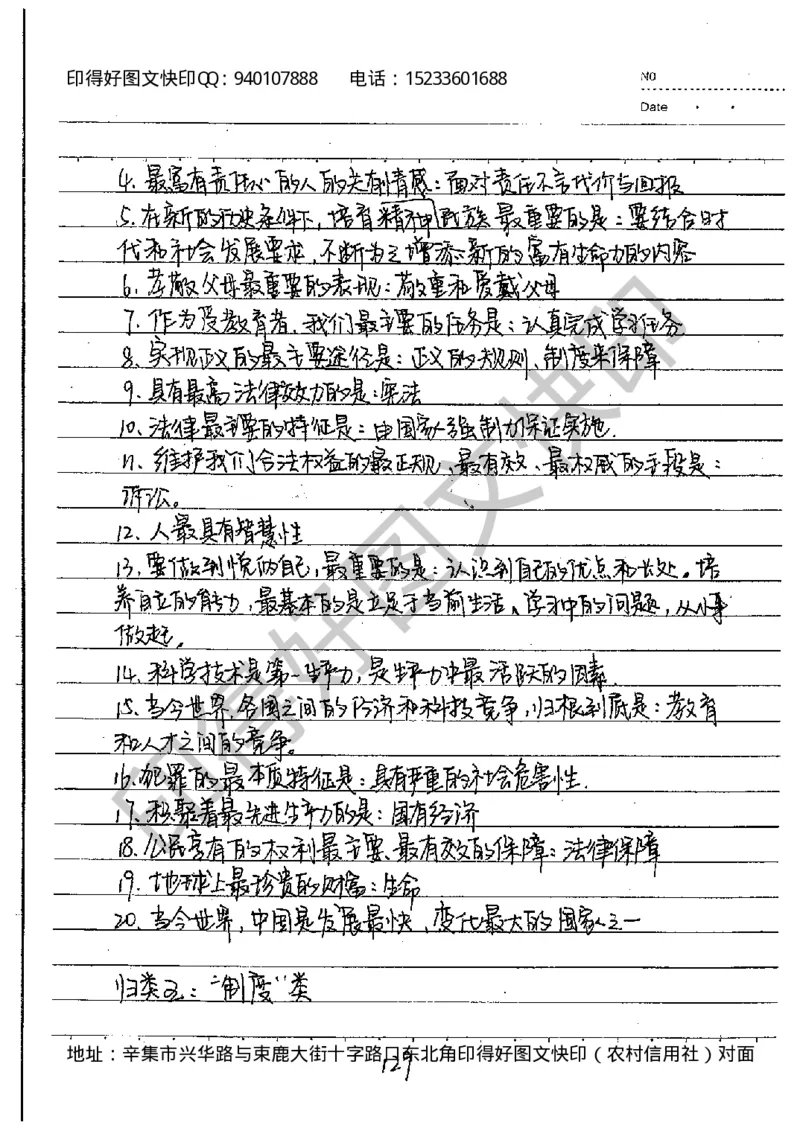 印得好图文快印QQ：940107888 电话：15233601688
NO
Date
4. 最富有责任心的人的共有情感：面对责任不言代价与回报
5. 在新的历史条件下，培育精神民族最重要的是：要结合时
代和社会发展要求，不断为之增添新的富有生命力的内容
6. 孝敬父母最重要的表现：敬重和爱戴父母
7. 作为受教育者，我们最主要的任务是：认真完成学习任务
8. 实现正义的最主要途径是：正义的规则、制度来保障
9. 具有最高法律效力的是：宪法
10. 法律最主要的特征是：由国家强制力保证实施.
11. 维护我们合法权益的最正规、最有效、最权威的手段是：
诉讼。
12. 人最具有智慧性
13. 要做到悦纳自己，最重要的是：认识到自己的优点和长处。培
养自立的能力，最基本的是立足于当前生活、学习中的问题，从小事
做起.
14. 科学技术是第一生产力，是生产力中最活跃的因素.
15. 当今世界，各国之间的经济和科技竞争，归根到底是：教育
和人才之间的竞争。
16. 犯罪的最本质特征是：具有严重的社会危害性.
17. 积聚着最先进生产力的是：国有经济
18. 公民享有的权利最主要、最有效的保障：法律保障
19. 地球上最珍贵的财富：生命
20. 当今世界，中国是发展最快、变化最大的国家之一
归类三：“制度”类
地址：辛集市兴华路与束鹿大街十字路口东北角印得好图文快印（农村信用社）对面
129
印得好图文快印